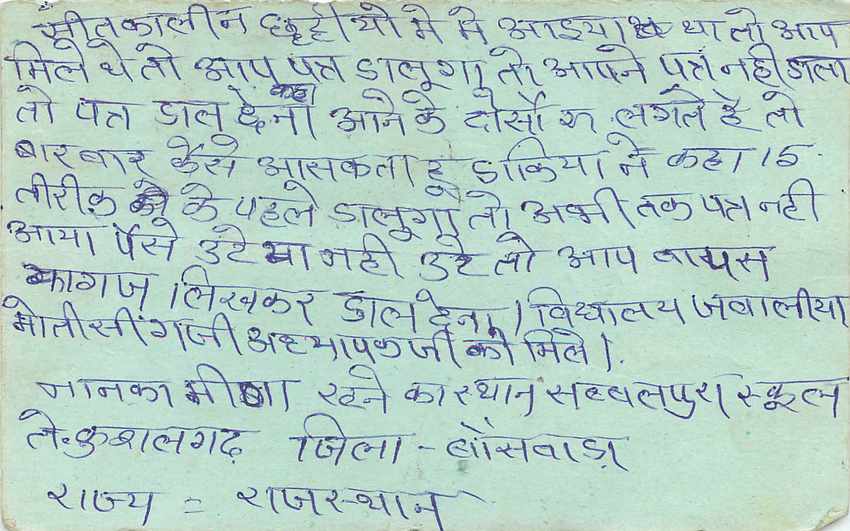 सीतकालीन छुट्टीयो मे मे आइया था तो आप
मिले थे तो आप कहा पत्र डालूगा तो आपने पत्र नही डाला
तो पत्र डाल देना आने के दोसौ रु. लगते है तो
बारबार कैसे आसकता हू डाकिया ने कहा 15
तीरीक के पहले डालूगा तो अभी तक पत्र नही
आया पैसे उटे या नही उटे तो आप वापस
कागज लिखकर डाल देना। विद्यालय जवालीया
मोतीसींगजी अध्यापकजी को मिले।
नानका मीणा रहने का स्थान सब्बलपुरा स्कूल
ते. कुशलगढ़ जिला - बाँसवाडा
राज्य = राजस्थान